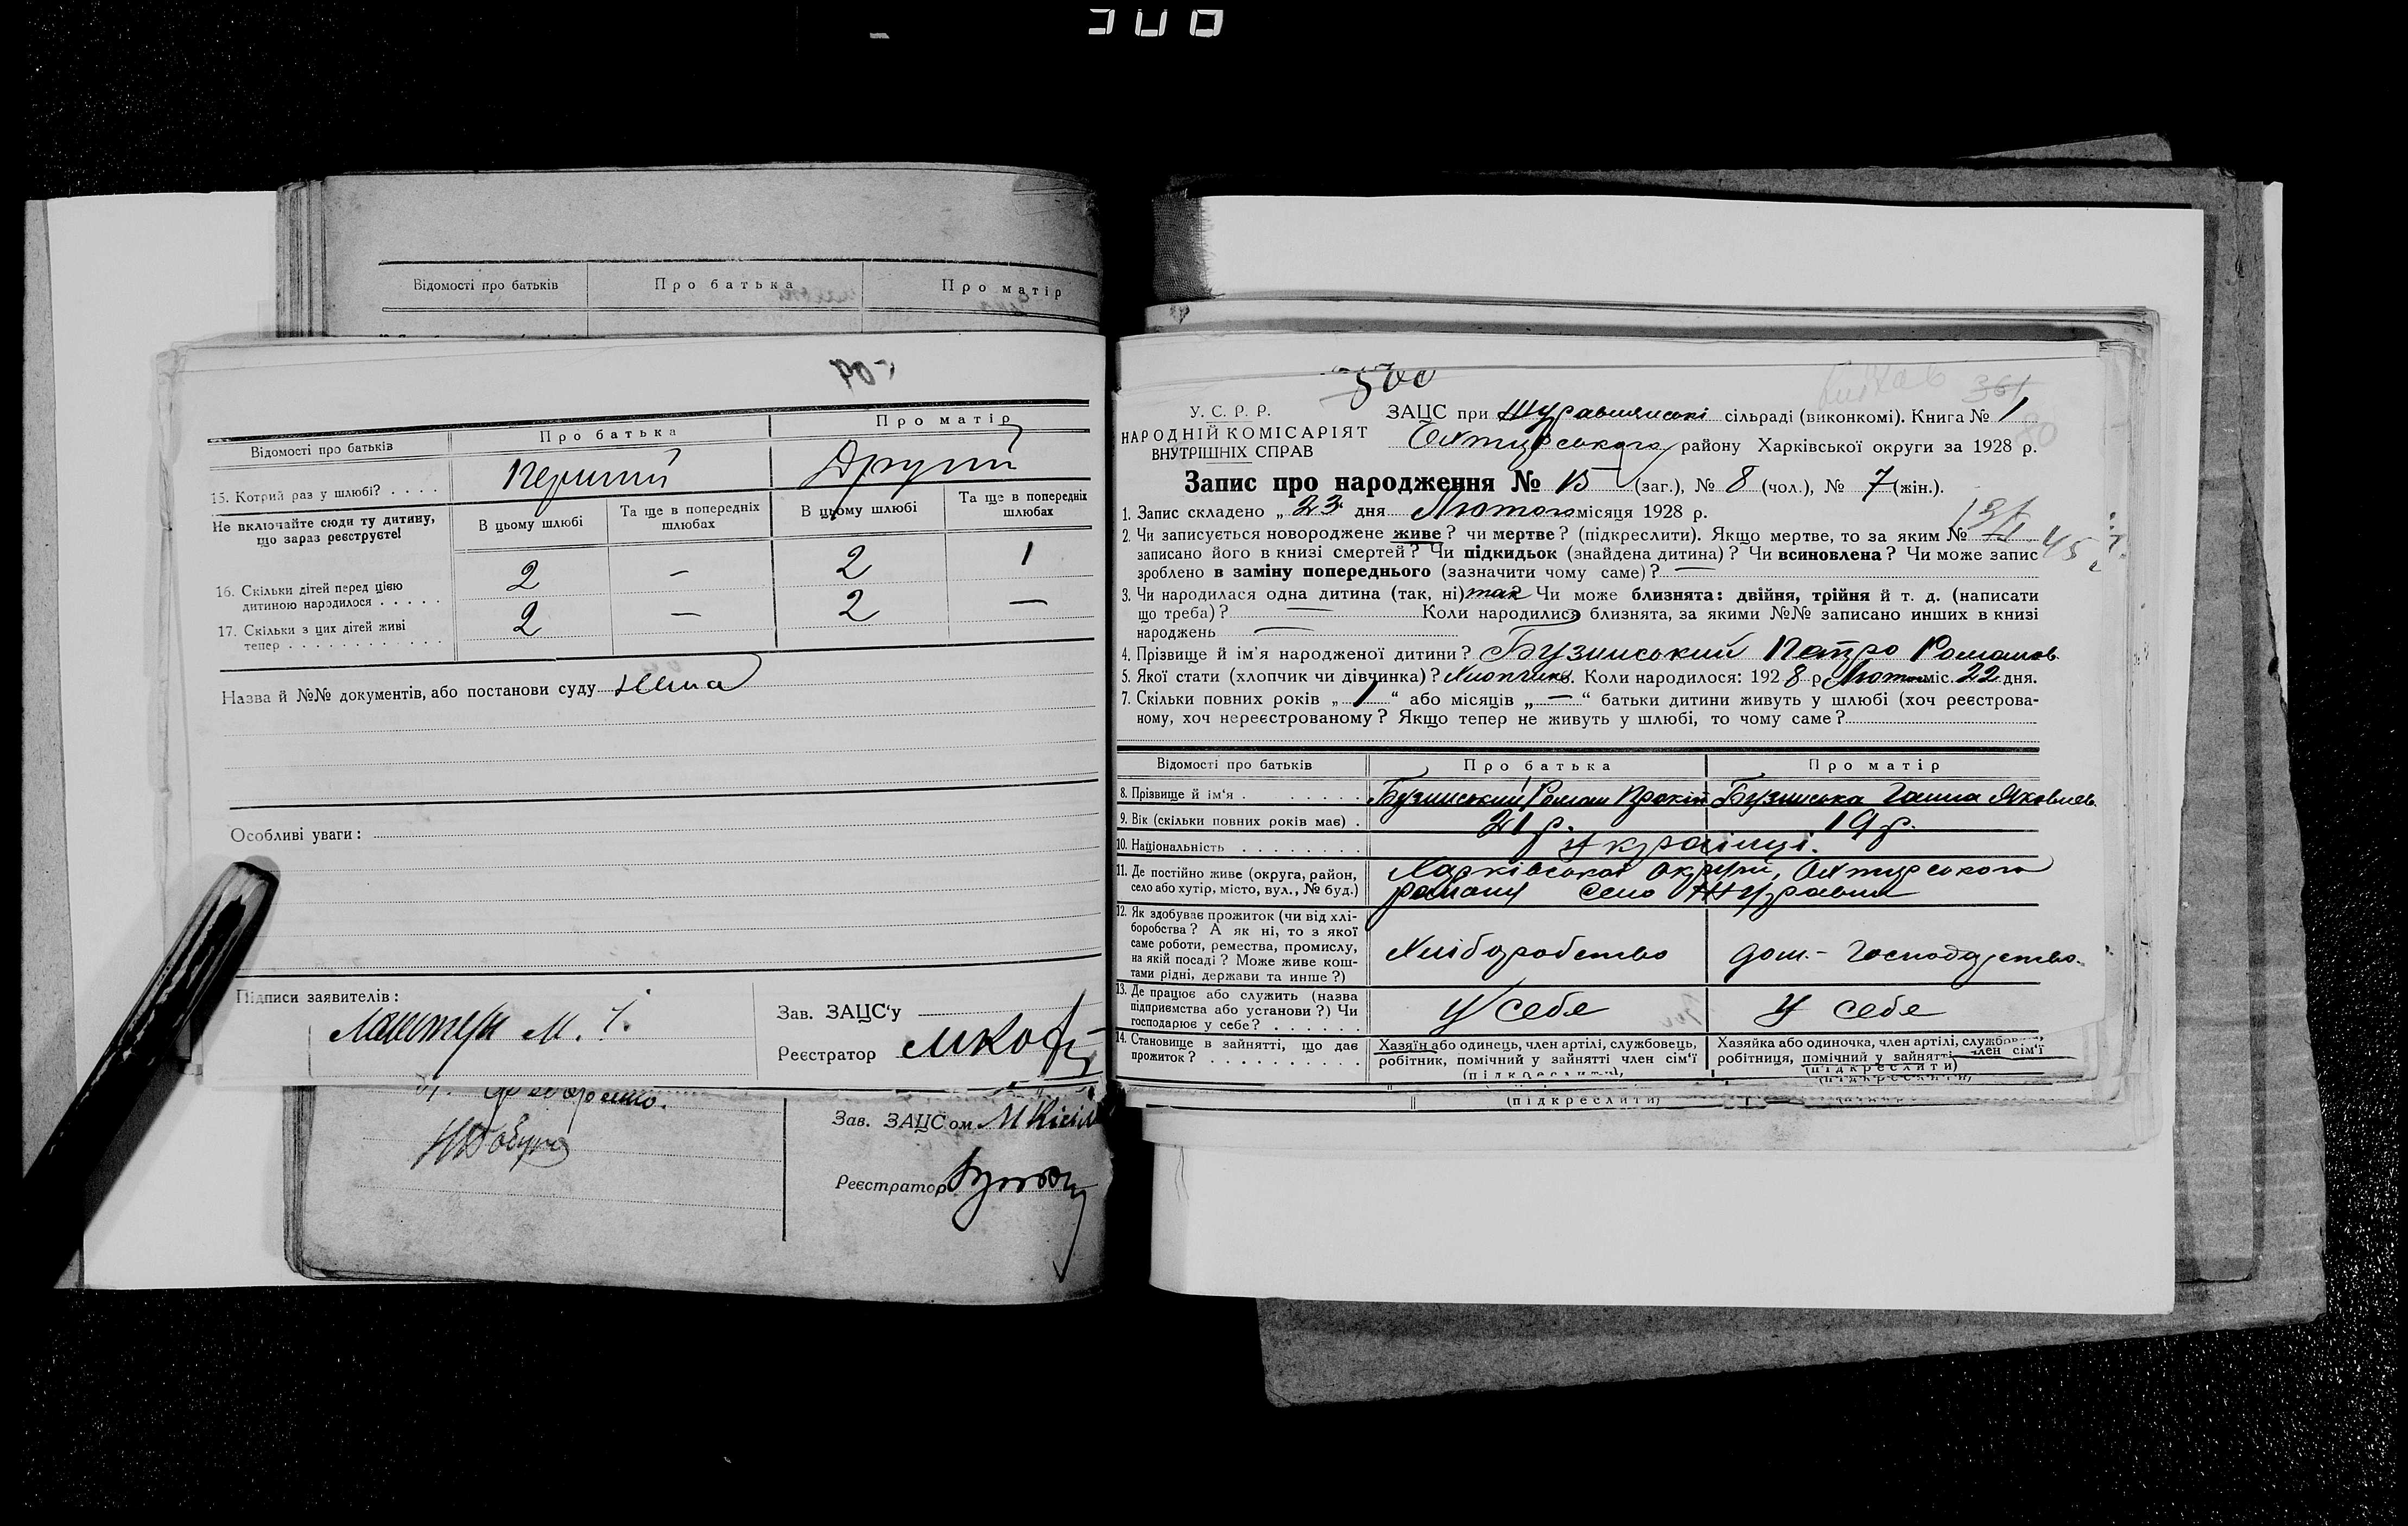 300
Відомості про батьків
Про батька
Про матір
Відомості про батьків
Про батька
Про матір
15. Котрий раз у шлюбі? . . . .
Перший
Другий
Не включайте сюди ту дитину,
що зараз реєструєте!
В цьому шлюбі
Та ще в попередніх
шлюбах
В цьому шлюбі
Та ще в попередніх
шлюбах
16. Скільки дітей перед цією
дитиною народилося . . . . .
2
—
2
1
17. Скільки з цих дітей живі
тепер . . . . . . . . . . . .
2
—
2
—
Назва й №№ документів, або постанови суду Нема
Особливі уваги:
Підписи заявителів:
М.
Зав. ЗАЦС‘у
Реєстратор
Федоренко.
Зав. ЗАЦСом
Реєстратор
300
361
У. С. Р. Р.
НАРОДНІЙ КОМІСАРІЯТ
ВНУТРІШНІХ СПРАВ
ЗАЦС при Журавлянські сільраді (виконкомі). Книга № 1
Охтирського району Харківської округи за 1928 р.
Запис про народження № 15 (заг.), № 8 (чол.), № 7 (жін.).
1. Запис складено „ 23 дня Лютого місяця 1928 р.
2. Чи записується новороджене живе? чи мертве? (підкреслити). Якщо мертве, то за яким №
записано його в книзі смертей? Чи підкидьок (знайдена дитина)? Чи всиновлена? Чи може запис
зроблено в заміну попереднього (зазначити чому саме)? —
3. Чи народилася одна дитина (так, ні) так Чи може близнята: двійня, трійня й т. д. (написати
що треба)? — Коли народилися близнята, за якими №№ записано инших в книзі
народжень —
4. Прізвище й ім'я народженої дитини? Бузинський Петро Романов.
5. Якої стати (хлопчик чи дівчинка)? Хлопчик. Коли народилося: 1928 р. Лютого міс. 22 дня.
7. Скільки повних років „ 1 “ або місяців „ — “ батьки дитини живуть у шлюбі (хоч реєстрова-
ному, хоч нереєстрованому? Якщо тепер не живуть у шлюбі, то чому саме?
Відомості про батьків
Про батька
Про матір
8. Прізвище й ім‘я . . . . . . . .
Бузинський Роман
Бузинська Ганна Яковлев.
9. Вік (скільки повних років має) .
21 р.
19 р.
10. Національність . . . . . . . .
Українці.
11. Де постійно живе (округа, район,
село або хутір, місто, вул., № буд.)
Харківської округи, Охтирського
району село Журавля
12. Як здобуває прожиток (чи від хлі-
боробства? А як ні, то з якої
саме роботи, ремества, промислу,
на якій посаді? Може живе кош-
тами рідні, держави та инше?)
Хліборобство
дом.- господарство.
13. Де працює або служить (назва
підприємства або установи?) Чи
господарює у себе? . . . . . .
У себе
У себе
14. Становище в зайнятті, що дає
прожиток? . . . . . . . . . . .
Хазяїн або одинець, член артілі, службовець,
робітник, помічний у зайнятті член сім‘ї
(підкреслити),
Хазяйка або одиночка, член артілі, службовець,
робітниця, помічний у зайнятті член сім‘ї
(підкреслити)
(підкреслити)
(підкреслити)